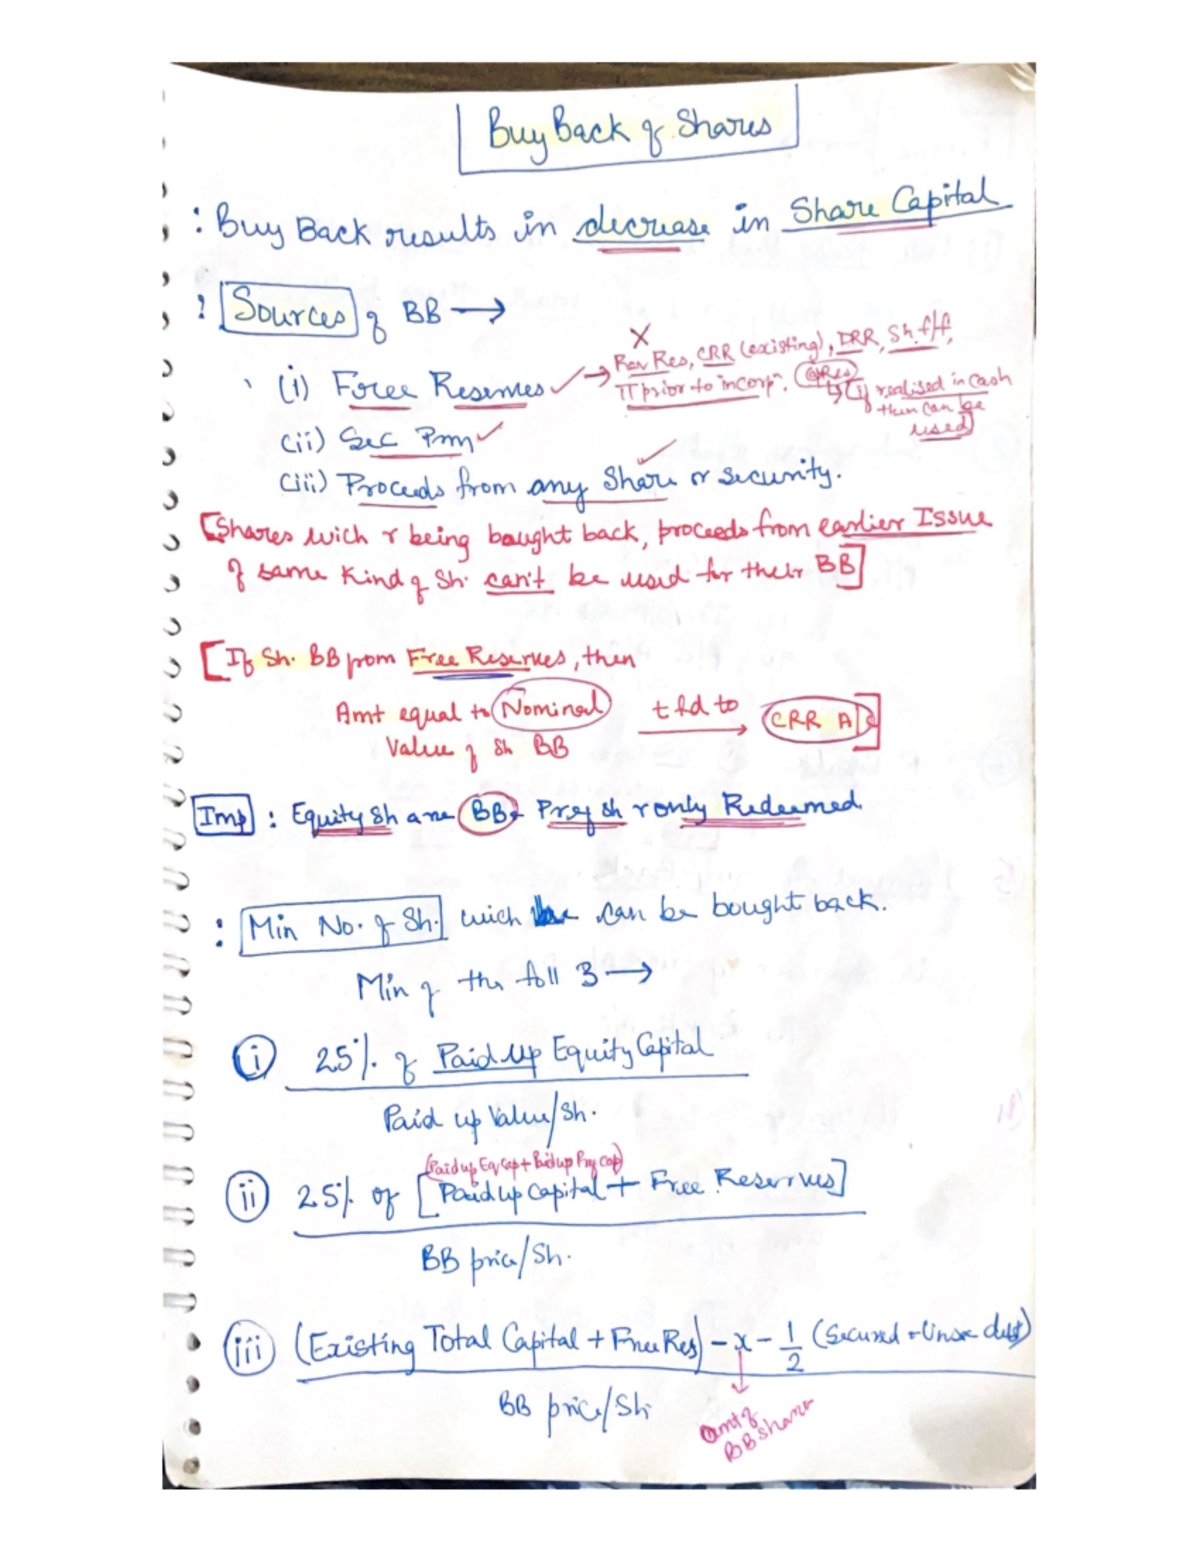 Buy Back of Shares
: Buy Back results in decrease in Share Capital
: Sources of BB →
X
(i) Free Reserves ✓ → Rev Res, CRR (existing), DRR, Sh. f/f,
π prior to incorpn.
↳ if realised in cash
then can be
used
(ii) Sec Pm ✓
(iii) Proceeds from any Share or security. ✓
[Shares wich r being bought back, proceeds from earlier Issue
of same Kind of Sh. can't be used for their BB]
[If Sh. BB from Free Reserves, then
Amt equal to Nominal tfd to → CRR A/c]
Value of Sh BB
Imp : Equity Sh are BB & Pref sh r only Redeemed.
: Min No. of Sh. wich can be bought back.
Min of the foll 3 →
(i) 25% of Paid Up Equity Capital
Paid up Value/Sh.
(Paid up Eq Cap + Paid up Prf Cap)
(ii) 25% of [Paid up Capital + Free Reserves]
BB price/Sh.
(iii) (Existing Total Capital + Free Res) - x - 1/2 (Secured + Unse debt)
BB price/Sh
amt of
BB shares